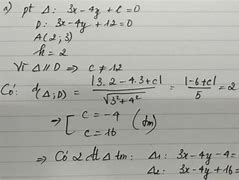 a) pt Δ: 3x - 4y + c = 0
D: 3x - 4y + 12 = 0
A(2; 3)
h = 2
Vì Δ // D ⇒ c ≠ 12
Có: d(A; D) = |3.2 - 4.3 + c| / √(3² + 4²) = |-6 + c| / 5 = 2
⇒ [ c = -4
c = 16 (tm)
⇒ Có 2 đt Δ tm: Δ₁: 3x - 4y - 4 =
Δ₂: 3x - 4y + 16 =